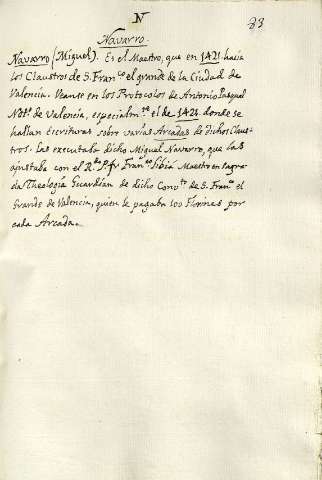 N
83
Navarro.
Navarro (Miguel). Es el Maestro, que en 1421. hacía
los Claustros de S. Franco. el grande de la Ciudad de
Valencia. Veanse en los Protocolos de Antonio Pasqual
Noto. de Valencia, especialmte. el de 1421. donde se
hallan escrituras sobre varias Arcadas de dichos Claus-
tros. Las executaba dicho Miguel Navarro, que las
ajustaba con el Rdo. P. fr. Franco. Sibia Maestro en Sagra-
da Theología Guardian de dicho Convto. de S. Franco. el
Grande de Valencia, quien le pagaba 100 Florines por
cada Arcada.